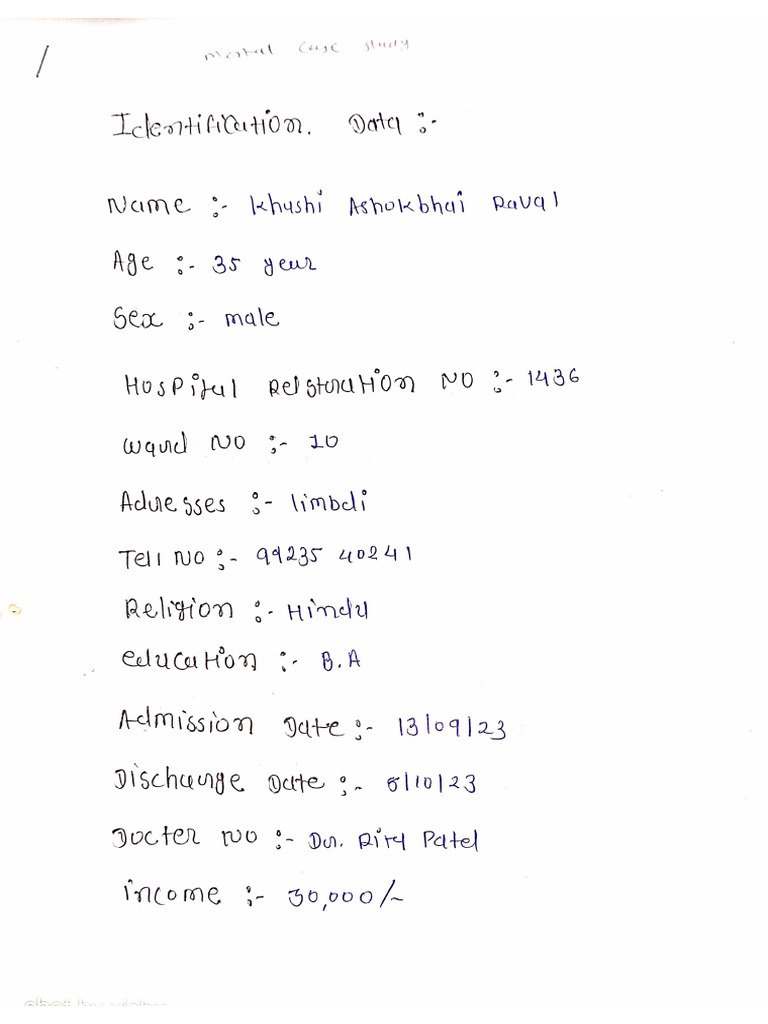 /
mental case study
Identification. Data :-
Name :- Khushi Ashokbhai Raval
Age :- 35 year
Sex :- male
Hospital Registration NO :- 1436
Ward NO :- 10
Adresses :- limbdi
Tell NO :- 99235 40241
Religion :- Hindu
Education :- B.A
Admission Date :- 13/09/23
Discharge Date :- 5/10/23
Docter NO :- Dr. Patel
income :- 30,000/-